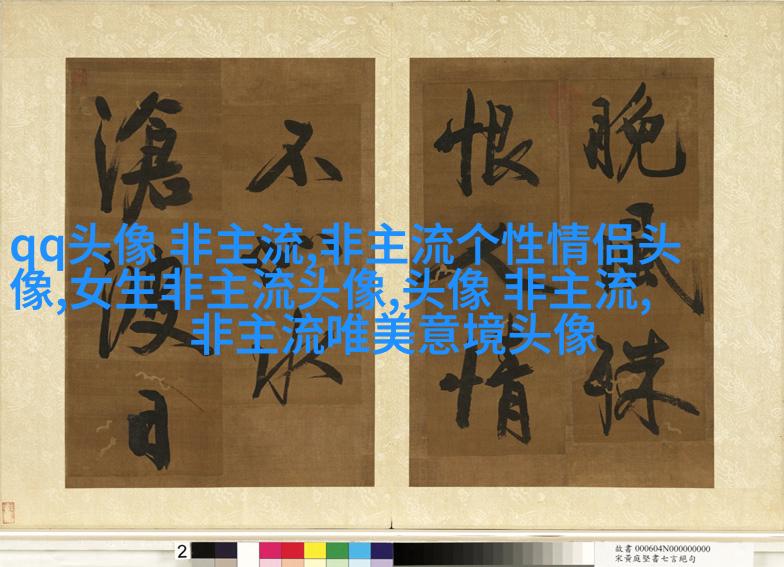 晚風殊
恨人情
不
滄波日
qq头像 非主流,非主流个性情侣头
像,女生非主流头像,头像 非主流,
非主流唯美意境头像
2
故書 000604N000000000
宋黃庭堅書七言絕句